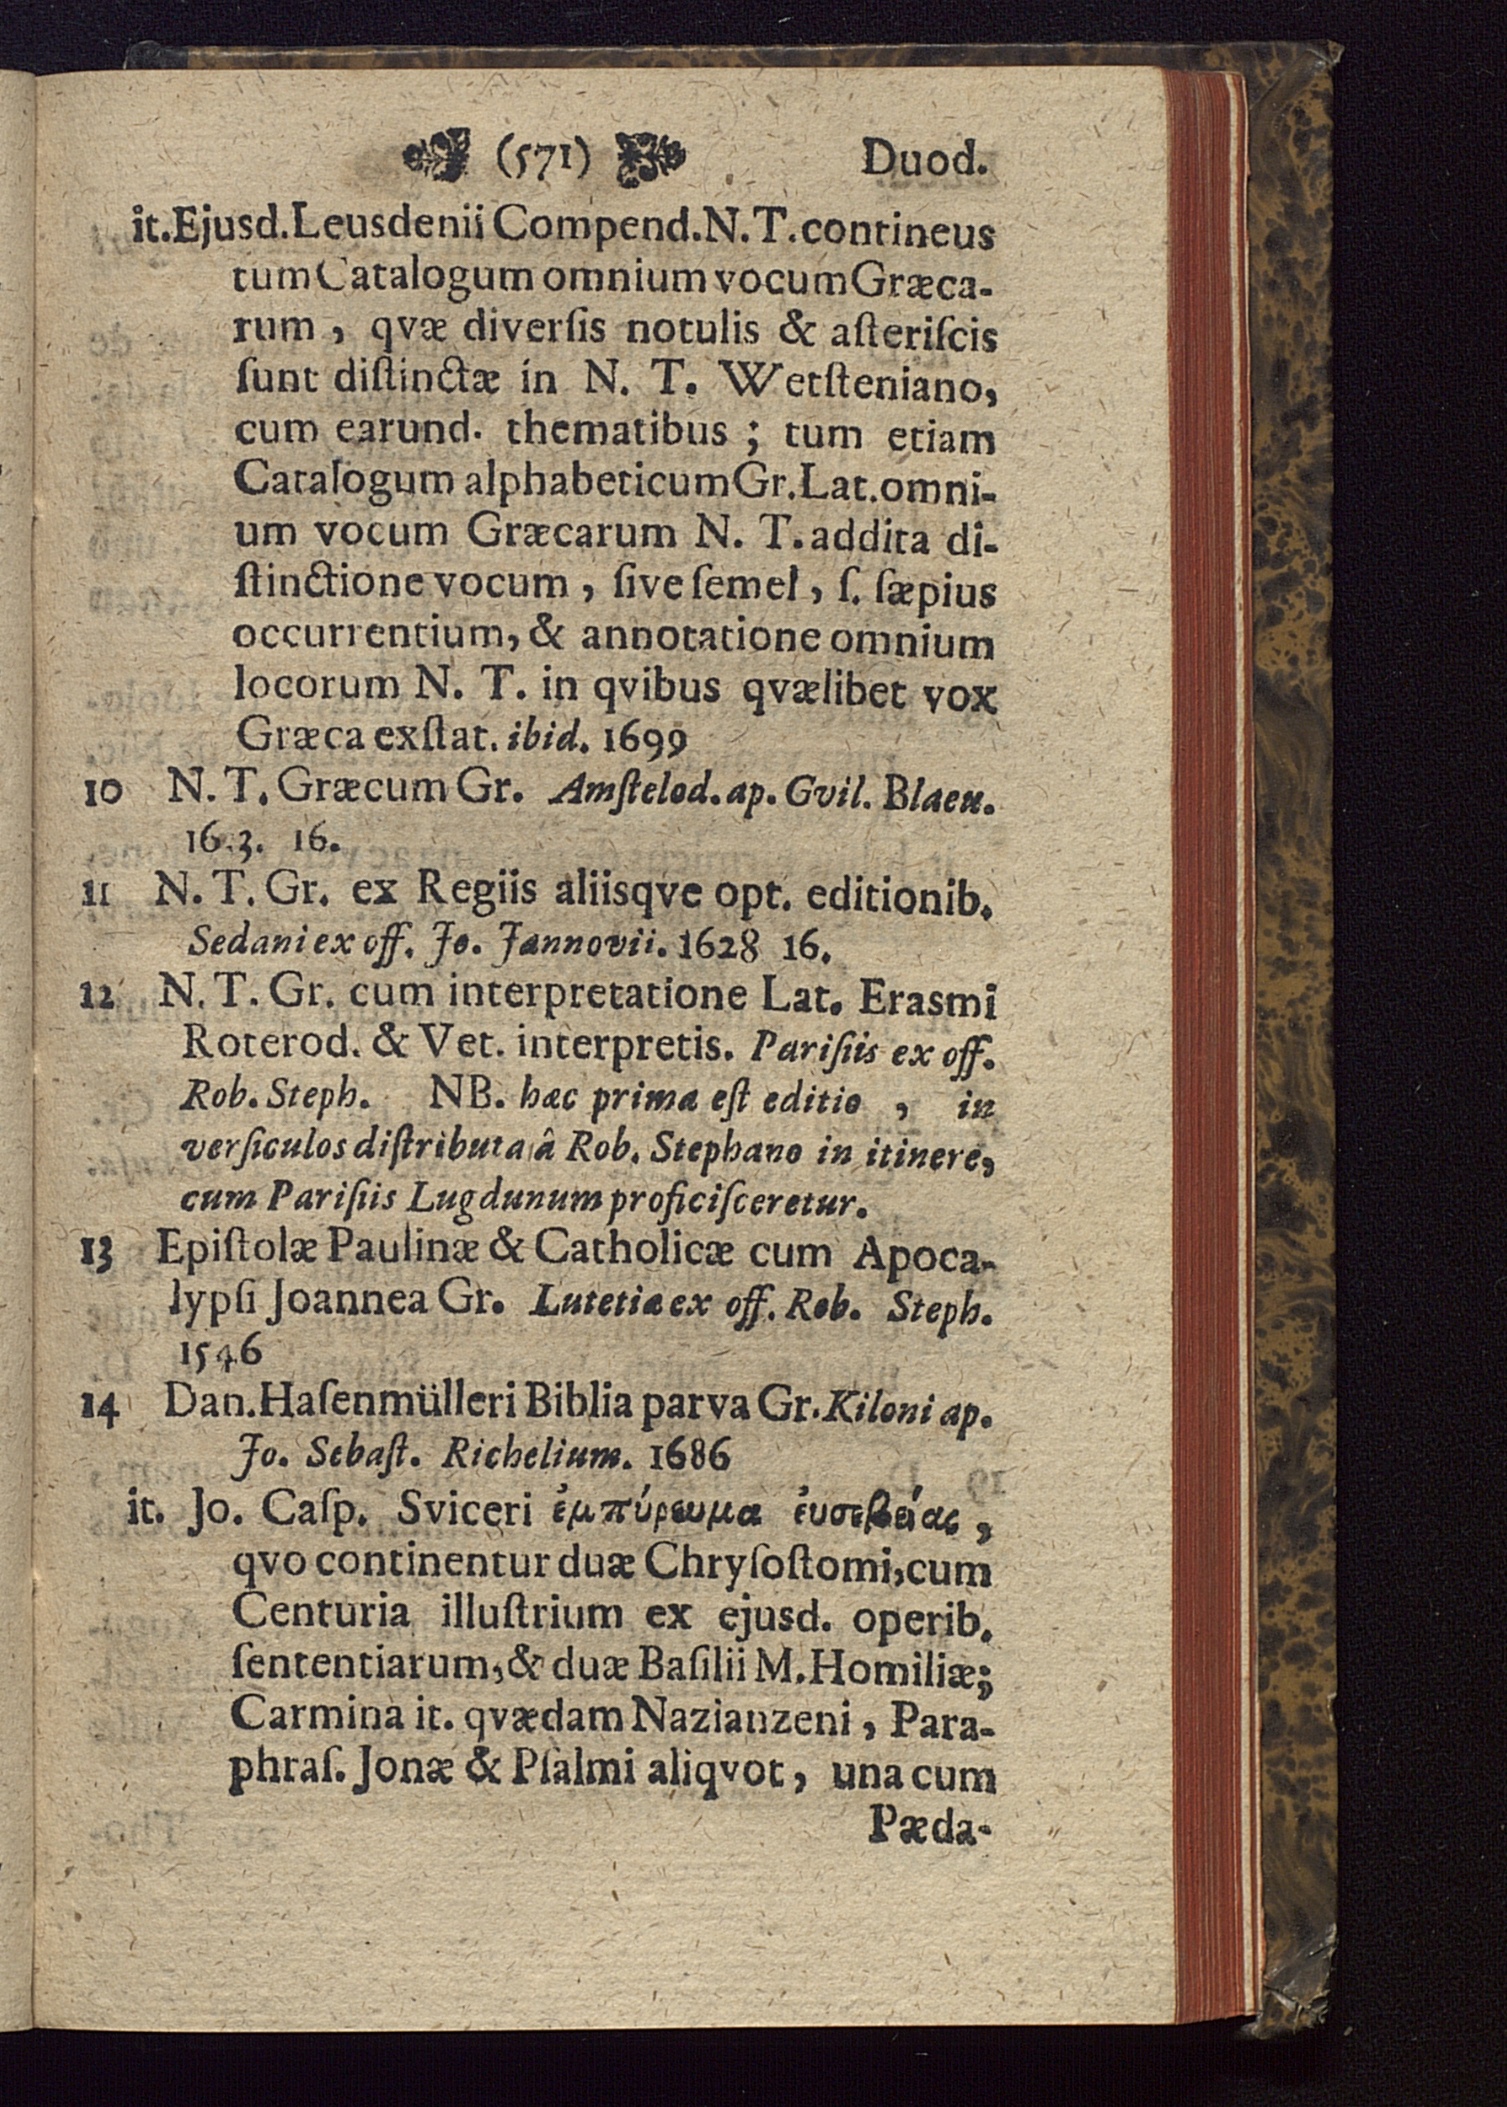 (571) Duod.
it. Ejusd. Leusdenii Compend. N. T. contineus
tum Catalogum omnium vocum Græca-
rum, qvæ diverſis notulis & aſteriſcis
ſunt diſtinctæ in N. T. Wetſteniano,
cum earund. thematibus; tum etiam
Catalogum alphabeticum Gr. Lat. omni-
um vocum Græcarum N. T. addita di-
ſtinctione vocum, ſive ſemel, ſ. ſæpius
occurrentium, & annotatione omnium
locorum N. T. in qvibus qvælibet vox
Græca exſtat. ibid. 1699
10 N. T. Græcum Gr. Amſtelod. ap. Gvil. Blaeu.
16.3. 16.
11 N. T. Gr. ex Regiis aliisqve opt. editionib.
Sedani ex off. Jo. Jannovii. 1628 16.
12 N. T. Gr. cum interpretatione Lat. Erasmi
Roterod. & Vet. interpretis. Pariſiis ex off.
Rob. Steph. NB. hæc prima eſt editio, in
verſiculos diſtributa â Rob. Stephano in itinere,
cum Pariſiis Lugdunum proficiſceretur.
13 Epiſtolæ Paulinæ & Catholicæ cum Apoca-
lypſi Joannea Gr. Lutetiæ ex off. Rob. Steph.
1546
14 Dan. Haſenmülleri Biblia parva Gr. Kiloni ap.
Jo. Sebaſt. Richelium. 1686
it. Jo. Caſp. Sviceri ἐμπύρευμα ἐυσεβείας,
qvo continentur duæ Chryſoſtomi, cum
Centuria illuſtrium ex ejusd. operib.
ſententiarum, & duæ Baſilii M. Homiliæ;
Carmina it. qvædam Nazianzeni, Para-
phraſ. Jonæ & Pſalmi aliqvot, una cum
Pæda-